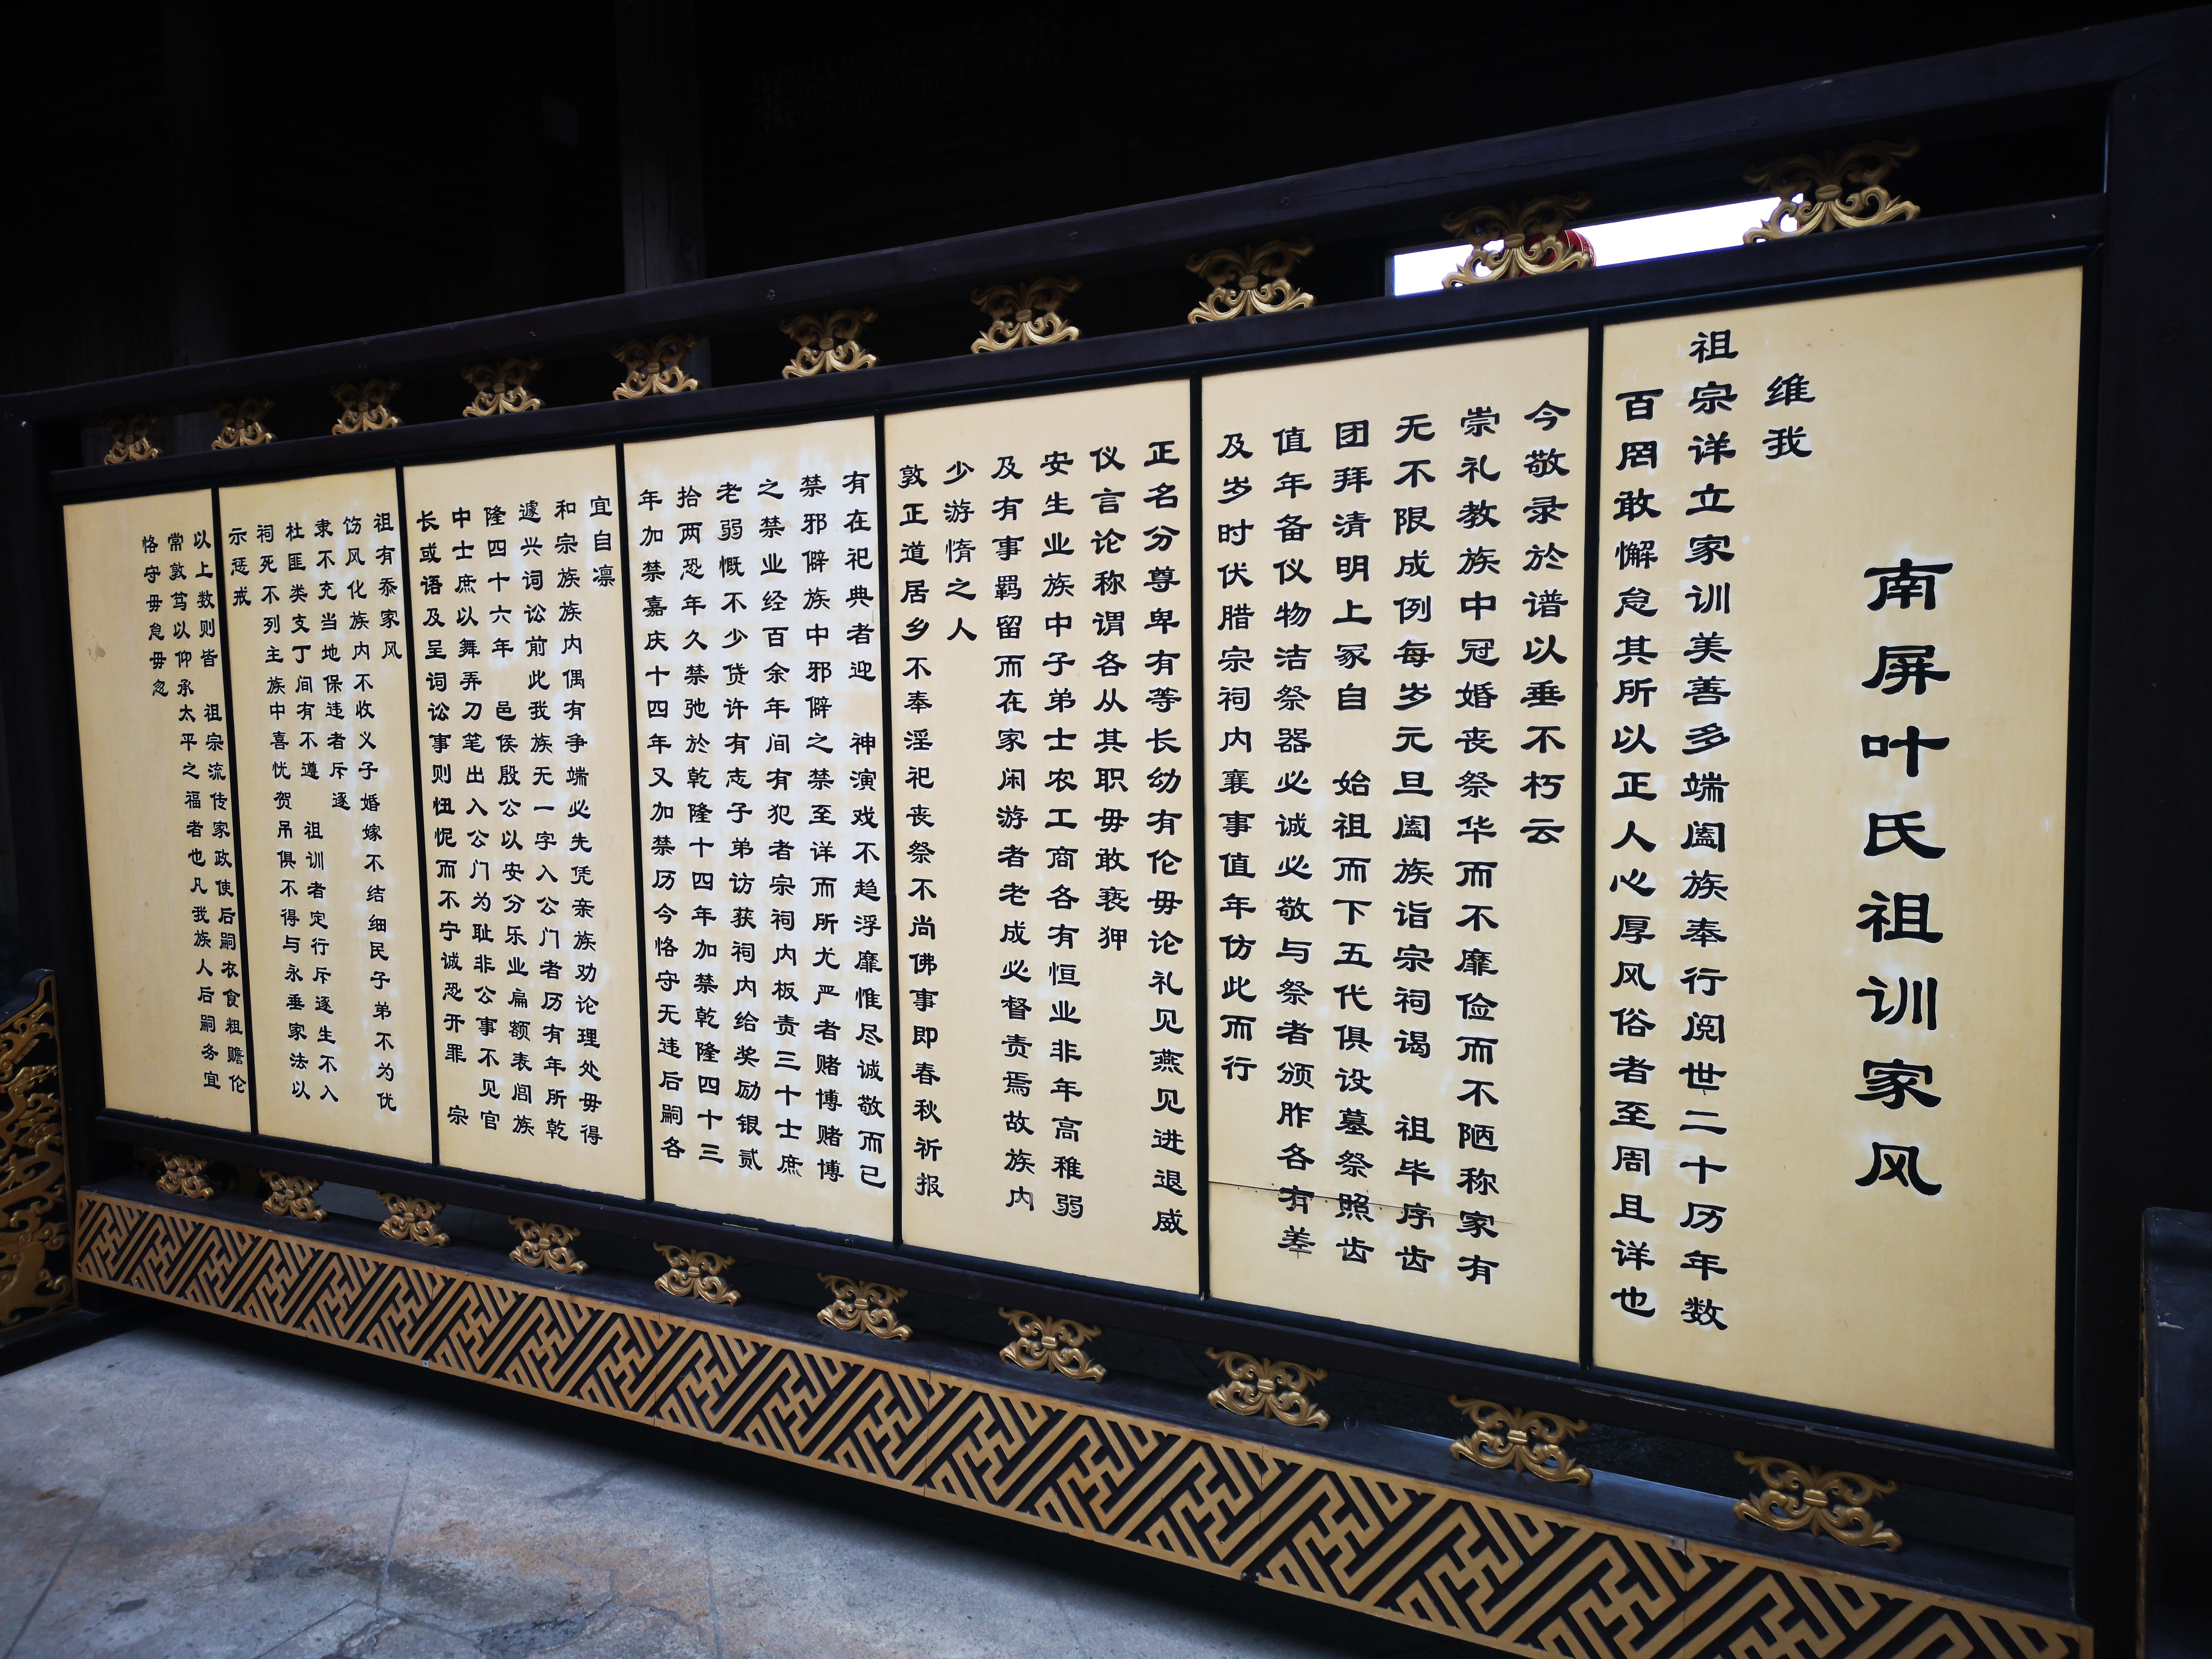 南屏叶氏祖训家风
维我
祖宗详立家训美善多端阖族奉行阅世二十历年数
百罔敢懈怠其所以正人心厚风俗者至周且详也
今敬录於谱以垂不朽云
崇礼教族中冠婚丧祭华而不靡俭而不陋称家有
无不限成例每岁元旦阖族诣宗祠谒 祖毕序齿
团拜清明上冢自 始祖而下五代俱设墓祭照齿
值年备仪物洁祭器必诚必敬与祭者颁胙各有差
及岁时伏腊宗祠内襄事值年仿此而行
正名分尊卑有等长幼有伦毋论礼见燕见进退威
仪言论称谓各从其职毋敢亵狎
安生业族中子弟士农工商各有恒业非年高稚弱
及有事羁留而在家闲游者老成必督责焉故族内
少游惰之人
敦正道居乡不奉淫祀丧祭不尚佛事即春秋祈报
有在祀典者迎 神演戏不趋浮靡惟尽诚敬而已
禁邪僻族中邪僻之禁至详而所尤严者赌博赌博
之禁业经百余年间有犯者宗祠内板责三十士庶
老弱概不少贷许有志子弟访获祠内给奖励银贰
拾两恐年久禁弛於乾隆十四年加禁乾隆四十三
年加禁嘉庆十四年又加禁历今恪守无违后嗣各
宜自凛
和宗族族内偶有争端必先凭亲族劝论理处毋得
遽兴词讼前此我族无一字入公门者历有年所乾
隆四十六年 邑侯殷公以安分乐业扁额表闾族
中士庶以舞弄刀笔出入公门为耻非公事不见官
长或语及呈词讼事则忸怩而不宁诚恐开罪 宗
祖有忝家风
饬风化族内不收义子婚嫁不结细民子弟不为优
隶不充当地保违者斥逐
杜匪类支丁间有不遵 祖训者定行斥逐生不入
祠死不列主族中喜忧贺吊俱不得与永垂家法以
示惩戒
以上数则皆 祖宗流传家政使后嗣衣食粗赡伦
常敦笃以仰承太平之福者也凡我族人后嗣务宜
恪守毋怠毋忽